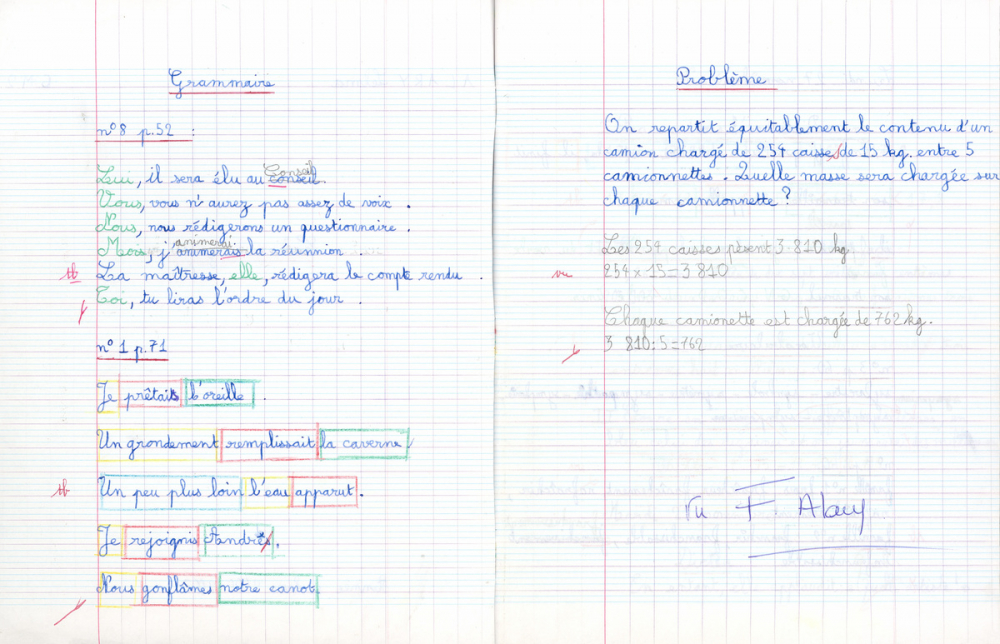 Grammaire
n°8 p.52 :
Lui, il sera élu au conseil. Conseil
Vous, vous n'aurez pas assez de voix .
Nous, nous rédigerons un questionnaire .
Moi, j'animerais la réunnion . animerai
tb La maîtresse, elle, rédigera le compte rendu .
Toi, tu liras l'ordre du jour .
n°1 p.71
Je prêtais l'oreille .
Un grondement remplissait la caverne
tb Un peu plus loin l'eau apparut .
Je rejoignis Andrès.
Nous gonflâmes notre canot.
Problème
On repartit équitablement le contenu d'un
camion chargé de 254 caisses de 15 kg. entre 5
camionnettes . Quelle masse sera chargée sur
chaque camionnette ?
Les 254 caisses pèsent 3 810 kg
vu 254 x 15 = 3 810
Chaque camionette est chargée de 762 kg.
3 810 : 5 = 762
vu F.